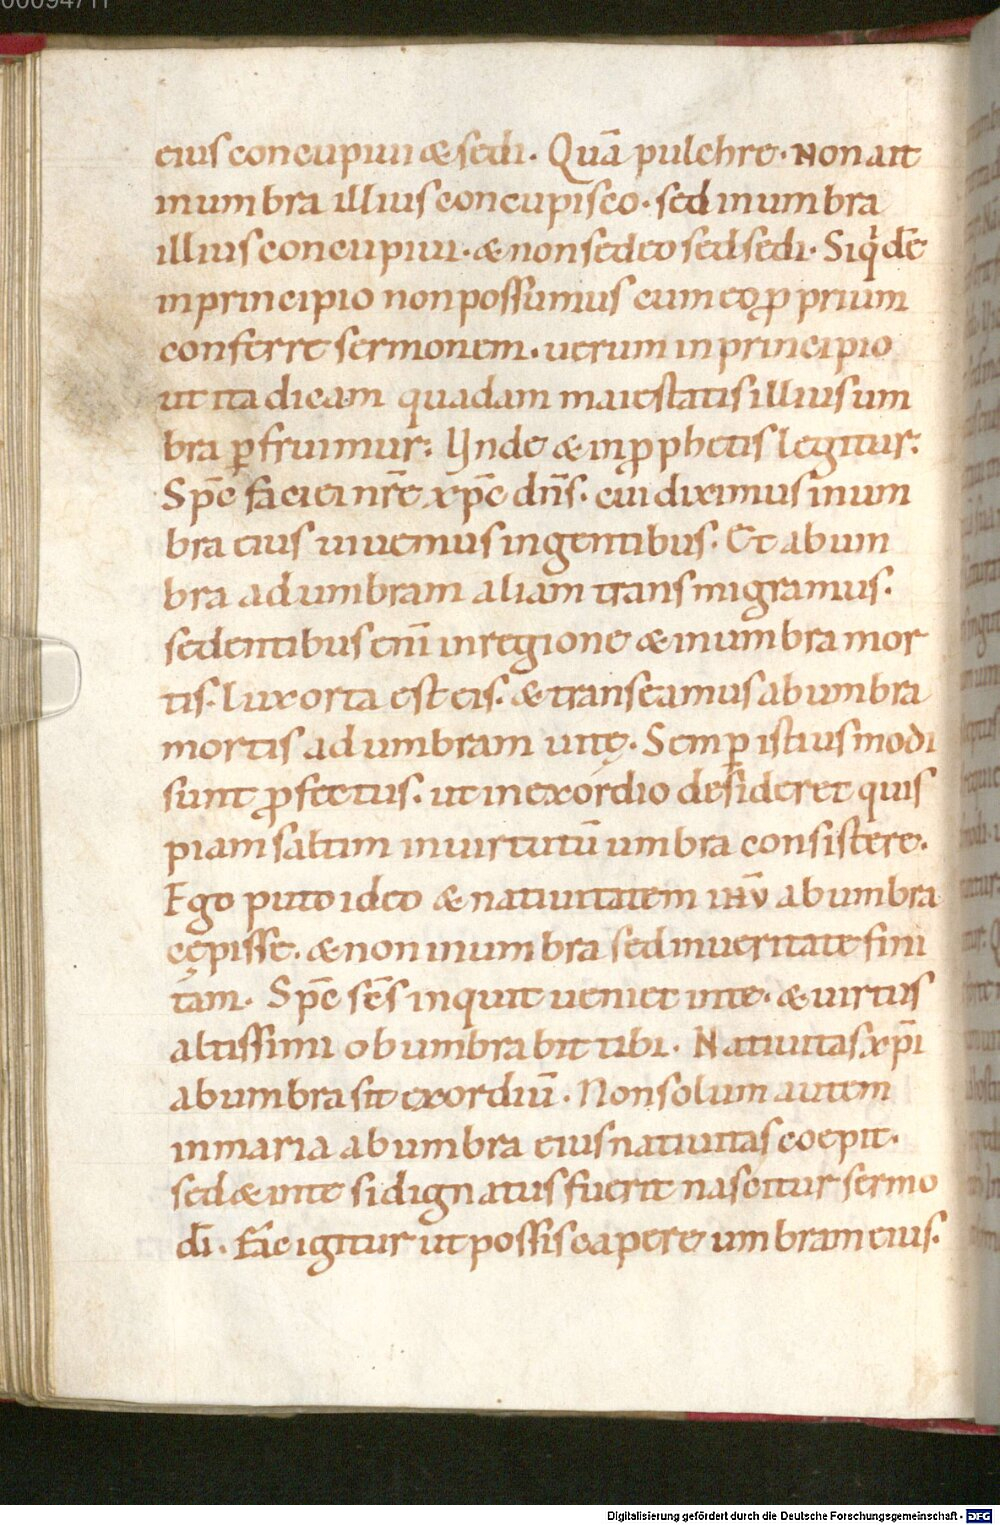 00094711
eius concupiui & sedi. Quā pulchre. Non ait
in umbra illius concupisco. sed in umbra
illius concupiui. & non sedeo sed sedi. Siq̇dē
in principio non possumus cum eo ꝓprium
conferre sermonem. uerum in principio
ut ita dicam quadam maiestatis illius um
bra ꝑfruimur: Unde & in ꝓphetis legitur:
Spc̄ faciei nr̄e xp̄c dn̄s. cui diximus in um
bra eius uiuemus in gentibus. Et ab um
bra ad umbram aliam transmigramus.
sedentibus enī in regione & in umbra mor
tis. lux orta est eis. & transeamus ab umbra
mortis ad umbram uitę. Semꝑ istius modi
sunt ꝓfectus. ut in exordio desideret quis
piam saltim in uirtutū umbra consistere.
Ego puto ideo & natiuitatem ihū ab umbra
cępisse. & non in umbra sed in ueritate fini
tam. Spc̄ sc̄s inquit ueniet in te. & uirtus
altissimi obumbrabit tibi. Natiuitas xpī
ab umbra sit exordiū. Non solum autem
in maria ab umbra eius natiuitas coepit.
sed & in te si dignatus fuerit nascitur sermo
dī. Fac igitur ut possis capere umbram eius.
Digitalisierung gefördert durch die Deutsche Forschungsgemeinschaft - DFG